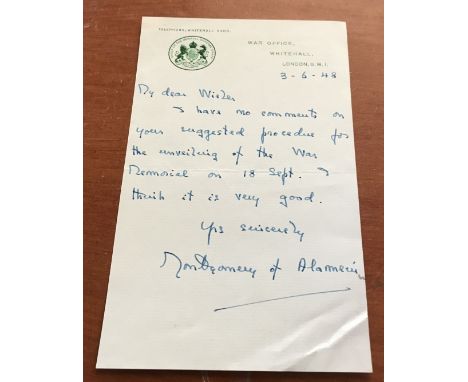 TELEPHONE, WHITEHALL
WAR OFFICE,
WHITEHALL,
LONDON, S.W.1.
3-6-48
My dear
I have no comments on
your suggested procedure for
the unveiling of the War
Memorial on 18 Sept. I
think it is very good.
Yrs sincerely
Montgomery of Alamein